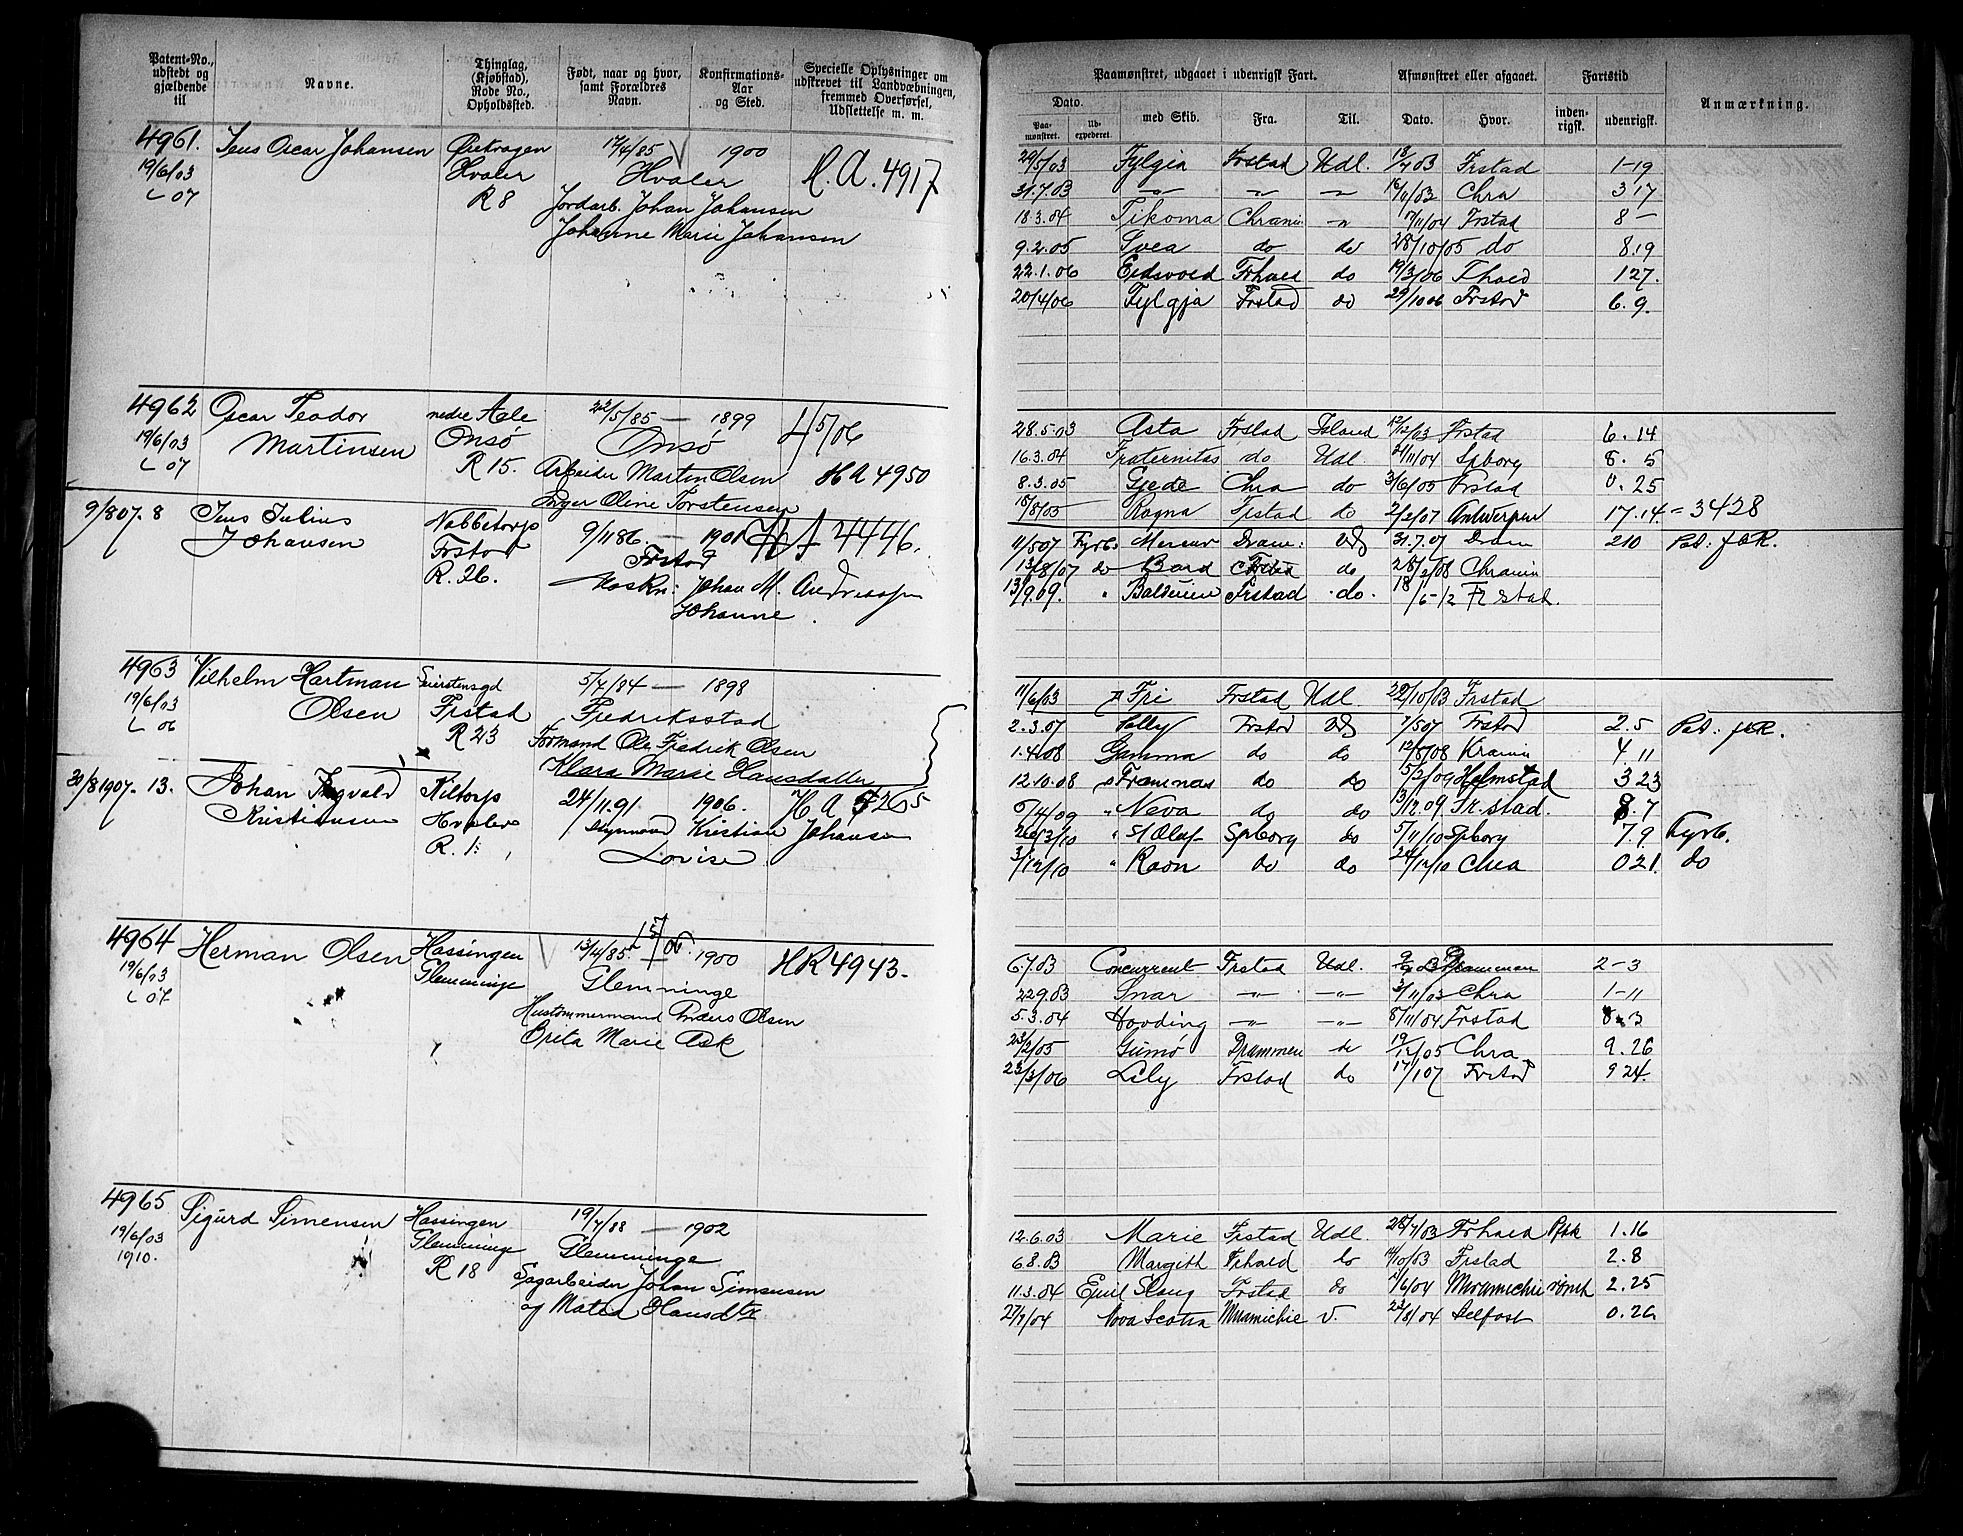 Patent-No., udstedt og gjældende til
Navne.
Thinglag, (Kjøbstad), Rode No., Opholdssted.
Født, naar og hvor, samt Forældres Navn.
Konfirmations-Aar og Sted.
Specielle Oplysninger om udskrevet til Landvæbningen, fremmed Overførsel, Udslettelse m. m.
4961. Jens Oscar Johansen 17/4/85 1900 H. A. 4917
19/6/03 Hvaler Hvaler
L 07 R 8 Jordarb. Johan Johansen
Johanne Marie Johansen
4962 Oscar Teodor nedre Aale 22/5/85 — 1899 4/5/06
19/6/03 Martinsen Onsø Onsø
L 07 R 15. Arbeider Martin Olsen HA 4950
Inger Oline Torstensen
9/8 07. 8 Jens Julius Nabbetorp 9/11 86. — 1901 4446.
Johansen Frstad Frstad
R. 26. Maskn: Johan M. Andreassen
Johanne.
4963 Vilhelm Hartman 5/7/84 — 1898
19/6/03 Olsen Frstad Fredriksstad
L 06 R 23 Formand Ole Fredrik Olsen
Klara Marie Hansdatter
30/8 1907. 13. Johan Ingvald Kiltorp 24/11.91. 1906. H A 5265
Kristiansen Hvaler Kristian Johansen
R. 1. Lovise
4964 Herman Olsen Hassingen 13/4/85 1900 HR 4943.
19/6/03 Glemminge Glemminge
L 07 Hustømmermand Anders Olsen
Brita Marie Ask
4965 Sigurd Simensen Hassingen 19/7/88 — 1902
19/6/03 Glemminge Glemminge
1910. R 18 Sagarbeider Johan Simensen
og Matea Hansdtr
Paamønstret, udgaaet i udenrigsk Fart.
Afmønstret eller afgaaet.
Fartstid
Anmærkning.
Dato.
Paamønstret.
Udexpederet.
med Skib.
Fra.
Til.
Dato.
Hvor.
indenrigsk.
udenrigsk.
29/5/03 Fylgia Frstad Udl. 18/7 03 Frstad 1-19
31.7.03 —"— —"— —"— 16/11/03 Chra 3 17
18.3.04 Tikoma Chrania —"— 17/11/04 Frstad 8 —
9.2.05 Svea do do 28/10/05 do 8.19
22.1.06 Eidsvold Frhald do 19/3/06 Fhald 1 27.
20/4/06 Fylgja Frstad do 29/10 06 Frstad 6. 9.
28.5.03 Asta Frstad Island 12/12/03 Frstad 6. 14
16.3.04 Fraternitas do Udl. 21/11/04 Spborg 8. 5
8.3.05 Gjede Chra do 3/6/05 Frstad 0. 25
15/8/05 Ragna Frstad do 2/2/07 Antwerpen 17.14. = 3428
11/5 07 Fyrb. Mercur Dram: Udl 31.7.07 Dram 2 10
13/8/07 do Bard do 28/2/08 Chrania
13/9.09. " Balduin Frstad do. 18/5-12 Frstad.
11/6/03 Fri Frstad Udl. 22/10/03 Frstad
2.3.07 Sally Frstad Udl 7/5 07 Frstad 2. 5
1.4.08 Gamma do do 12/8/08 Krania 4 11
12.10.08 Framnas do do 5/2/09 Helmstad 3 23
6/4/09 " Neva do do 3/12.09 Fr.stad. 8. 7
26/3/10 " St Olaf Spborg do 5/11/10 Spborg 7. 9 Fyrb.
3/12/10 " Ravn do do 24/12/10 Chra 0 21. do
6.7.03 Concurrent Frstad Udl. Drammen 2 - 3
22.9.03 Snar —"— —"— 3/11/03 Chra 1-11
5.3.04 Hovding —"— —"— 8/11/04 Frstad 8. 3
23/2/05 Gumø Drammen do 19/12/05 Chra 9. 26
23/3/06 Lily Frstad do 17/1 07 Frstad 9 24.
12.6.03 Marie Frstad Udl. 28/7/03 Frhald 1. 16
6.8.03 Margith Frhald do 14/10/03 Frstad 2. 8
11.3.04 Emil Stang Frstad do 6/04 Miramichi rømt 2. 25
27/7/04 Nova Scotia Miramichie v. 23/8/04 Belfast 0. 26